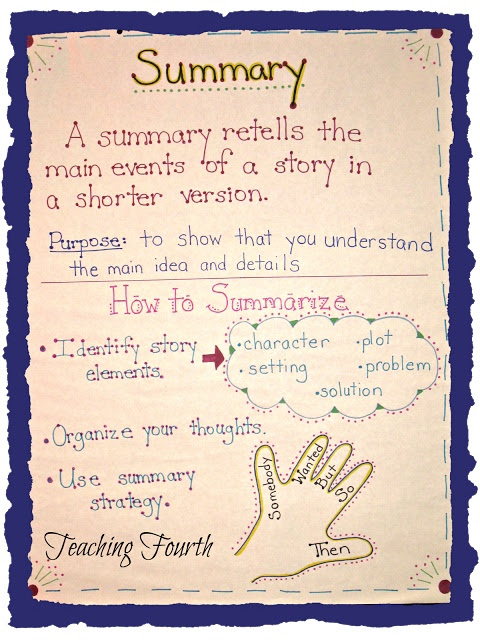 Summary
A summary retells the
main events of a story in
a shorter version.
Purpose: to show that you understand
the main idea and details
How to Summarize
• Identify story
elements.
• character
• plot
• setting
• problem
• solution
• Organize your thoughts.
• Use summary
strategy.
Somebody
Wanted
But
So
Then
Teaching Fourth